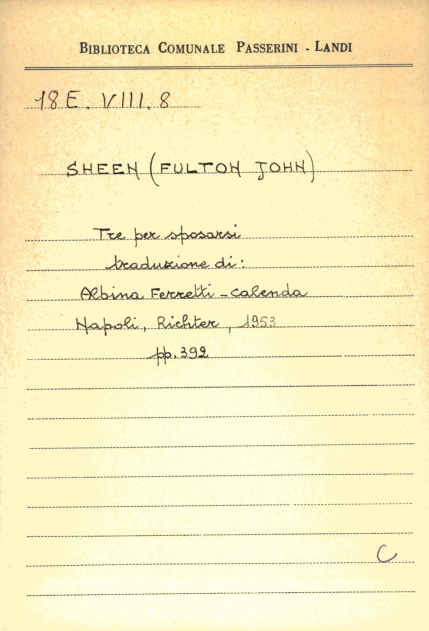 BIBLIOTECA COMUNALE PASSERINI - LANDI
18 E. VIII. 8
SHEEN (FULTON JOHN)
Tre per sposarsi
traduzione di:
Albina Ferretti - Calenda
Napoli, Richter, 1953
pp. 392
C